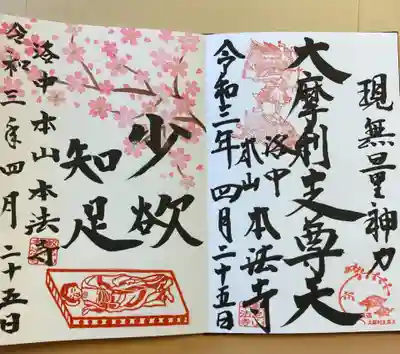 現無量神力
大摩利支尊天
洛中
本山 本法寺
令和三年 四月 二十五日
少欲
知足
洛中 本山 本法寺
令和三年四月 二十五日